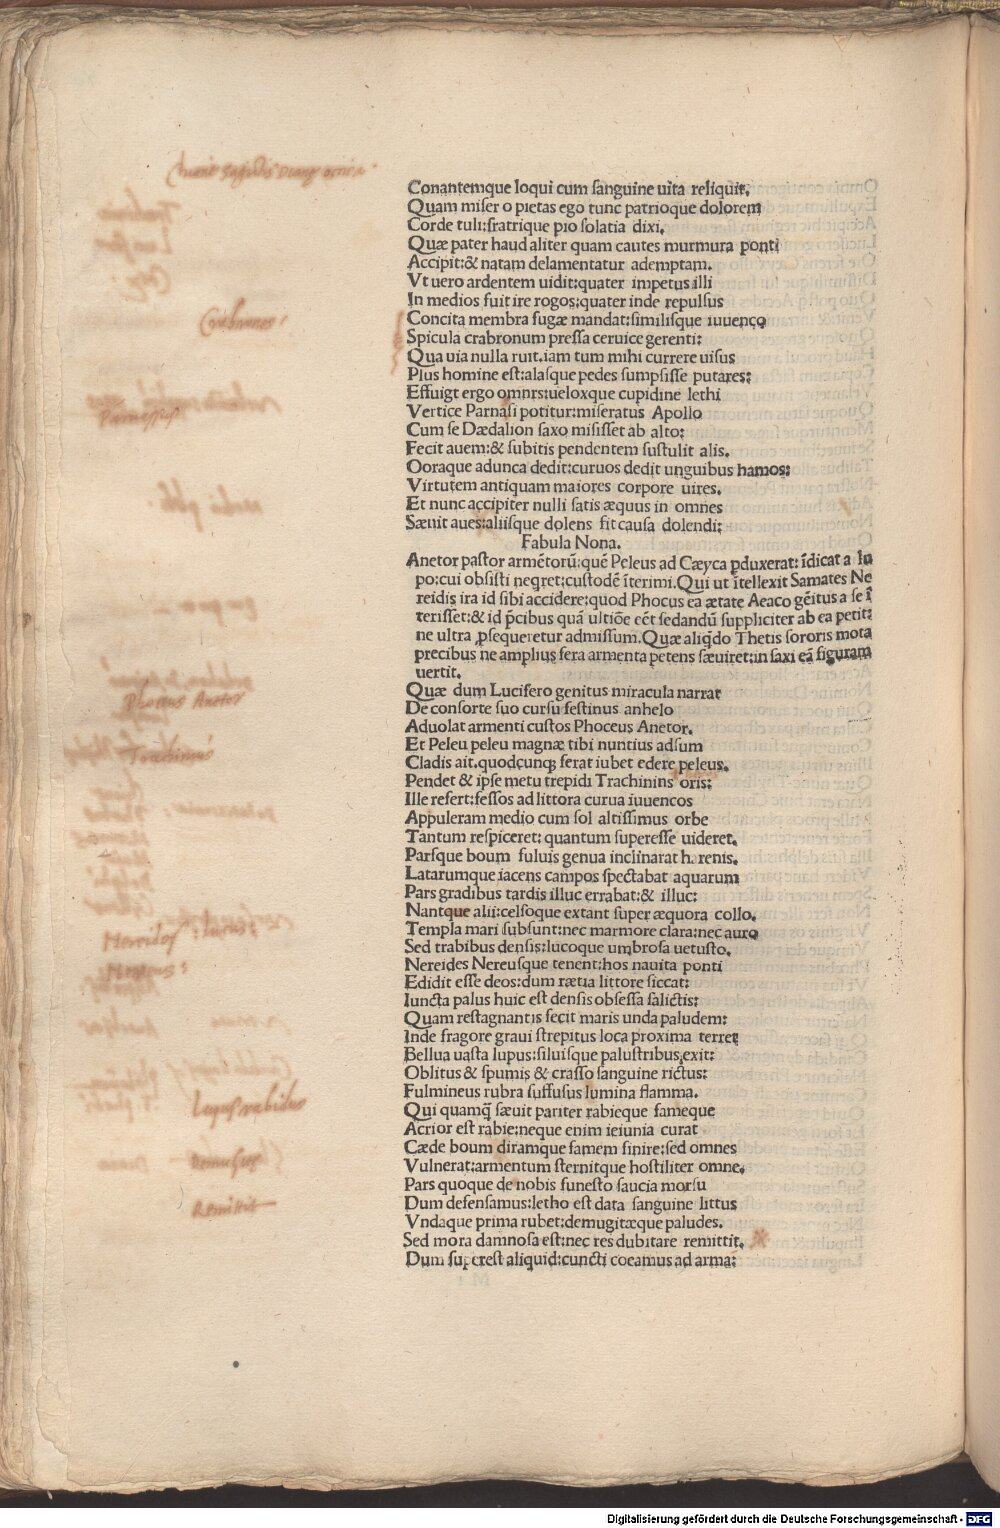 Conantemque loqui cum sanguine uita reliquit.
Quam miser o pietas ego tunc patrioque dolorem
Corde tuli:fratrique pio solatia dixi.
Quæ pater haud aliter quam cautes murmura ponti
Accipit:& natam delamentatur ademptam.
Vt uero ardentem uidit:quater impetus illi
In medios fuit ire rogos:quater inde repulsus
Concita membra fugæ mandat:similisque iuuenco
Spicula crabronum pressa ceruice gerenti:
Qua uia nulla ruit.iam tum mihi currere uisus
Plus homine est:alasque pedes sumpsisse putares:
Effuigt ergo omnrs:ueloxque cupidine lethi
Vertice Parnasi potitur:miseratus Apollo
Cum se Dædalion saxo misisset ab alto:
Fecit auem:& subitis pendentem sustulit alis.
Ooraque adunca dedit:curuos dedit unguibus hamos:
Virtutem antiquam maiores corpore uires.
Et nunc accipiter nulli satis æquus in omnes
Sæuit aues:aliisque dolens fit causa dolendi:
Fabula Nona.
Anetor pastor armētorū:quē Peleus ad Cæyca ꝓduxerat: īdicat a lu
po:cui obsisti neqret:custodē īterimi.Qui ut ītellexit Samates Ne
reidis ira id sibi accidere:quod Phocus ea ætate Aeaco gēitus a se ī
terisset:& id p̄cibus quā ultiōe eēt sedandū suppliciter ab ea petit:
ne ultra ꝓsequeretur admissum.Quæ aliq̇do Thetis sororis mota
precibus ne amplius fera armenta petens sæuiret:in saxi eā figuram
uertit.
Quæ dum Lucifero genitus miracula narrat
De consorte suo cursu festinus anhelo
Aduolat armenti custos Phoceus Anetor.
Et Peleu peleu magnæ tibi nuntius adsum
Cladis ait.quodcunqꝫ ferat iubet edere peleus.
Pendet & ipse metu trepidi Trachinins oris:
Ille refert:fessos ad littora curua iuuencos
Appuleram medio cum sol altissimus orbe
Tantum respiceret: quantum superesse uideret.
Parsque boum fuluis genua inclinarat harenis.
Latarumque iacens campos spectabat aquarum
Pars gradibus tardis illuc errabat:& illuc:
Nantque alii:celsoque extant super æquora collo.
Templa mari subsunt:nec marmore clara:nec auro
Sed trabibus densis:lucoque umbrosa uetusto.
Nereides Nereusque tenent:hos nauita ponti
Edidit esse deos:dum rætia littore siccat:
Iuncta palus huic est densis obsessa salictis:
Quam restagnantis fecit maris unda paludem:
Inde fragore graui strepitus loca proxima terret
Bellua uasta lupus:siluisque palustribus exit:
Oblitus & spumis & crasso sanguine rictus:
Fulmineus rubra suffusus lumina flamma.
Qui quamq̄ sæuit pariter rabieque fameque
Acrior est rabie:neque enim ieiunia curat
Cæde boum diramque famem finire:sed omnes
Vulnerat:armentum sternitque hostiliter omne.
Pars quoque de nobis funesto saucia morsu
Dum defensamus:letho est data sanguine littus
Vndaque prima rubet:demugitæque paludes.
Sed mora damnosa est:nec res dubitare remittit.
Dum superest aliquid:cuncti coeamus ad arma:
Crabrones
Parnassus
Phoceus Anetor
Trachinius
Nereides
Lupus rabidus
Remittit
Digitalisierung gefördert durch die Deutsche Forschungsgemeinschaft - DFG